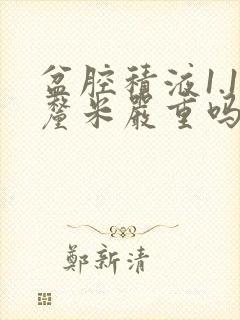 盆腔積液1.1
釐米嚴重嗎
鄭新清